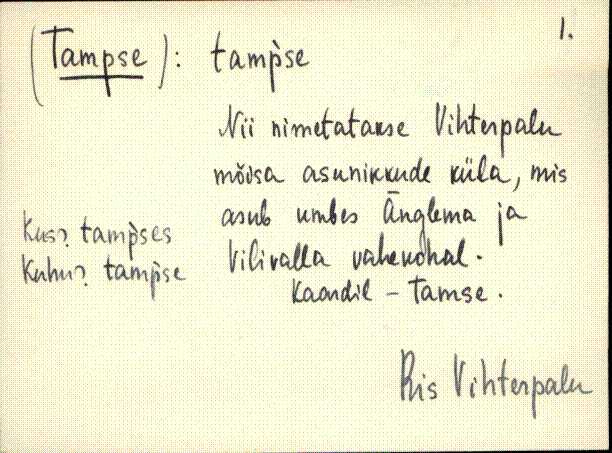 1.
(Tampse): tamp̀se
Nii nimetatakse Vihterpalu
mõisa asunikkude küla, mis
asub umbes Änglema ja
Vilivalla vahekohal.
Kaardil – Tamse.
Kus? tamp̀ses
Kuhu? tamp̀se
Ris Vihterpalu